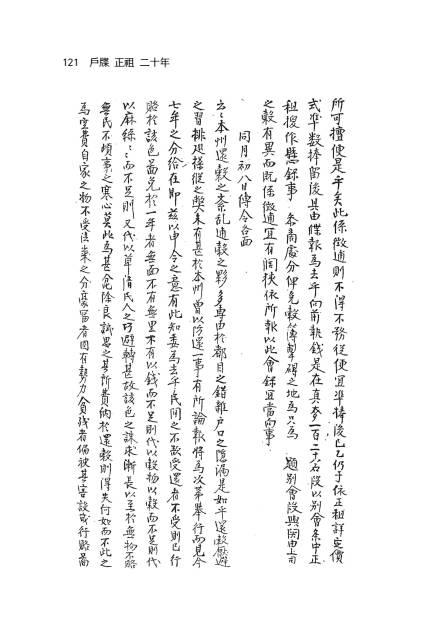 121 戶牒 正祖 二十年
所可擅便是乎矣此係徵逋則不得不務從便宜準捧後已乙仍于依正祖詳定價
式準數捧留後具由牒報爲去乎向前執錢是在眞麥一百二十石段以別會条中正
租換作懸錄事 忝商廢分俾免穀簿掣碍之地爲只爲 題別會段與関由上司
之穀有異而旣係徵逋宜有闊狹依所報以此會錄宜當向事
同月初八日傳令各面
云云本州還穀之紊乱逋穀之夥多專由於都目之錯雜戶口之隱漏是如乎還戱厭避
之習排処操縱之獘未有甚於本州曾以防還一事有所論報將爲次苐擧行而見今
七年之分給在卽玆以申令之意有此知委爲去乎民間之不欲受還者不受則已行
賂於該色啚免於一年者無面不有無里不有以錢而不足則代以穀物以穀而不足則代
以麻絲麻絲而不足則又代以草屨民人之巧避轉甚故該色之誅求漸長以至於無物不賂
無民不頃事之寒心莫此爲甚
除良試思之其所費納於還穀則得失何如而不此之
爲空費自家之物不受法業之分
富者固有勢力貧殘者偏被其害設或行賂啚